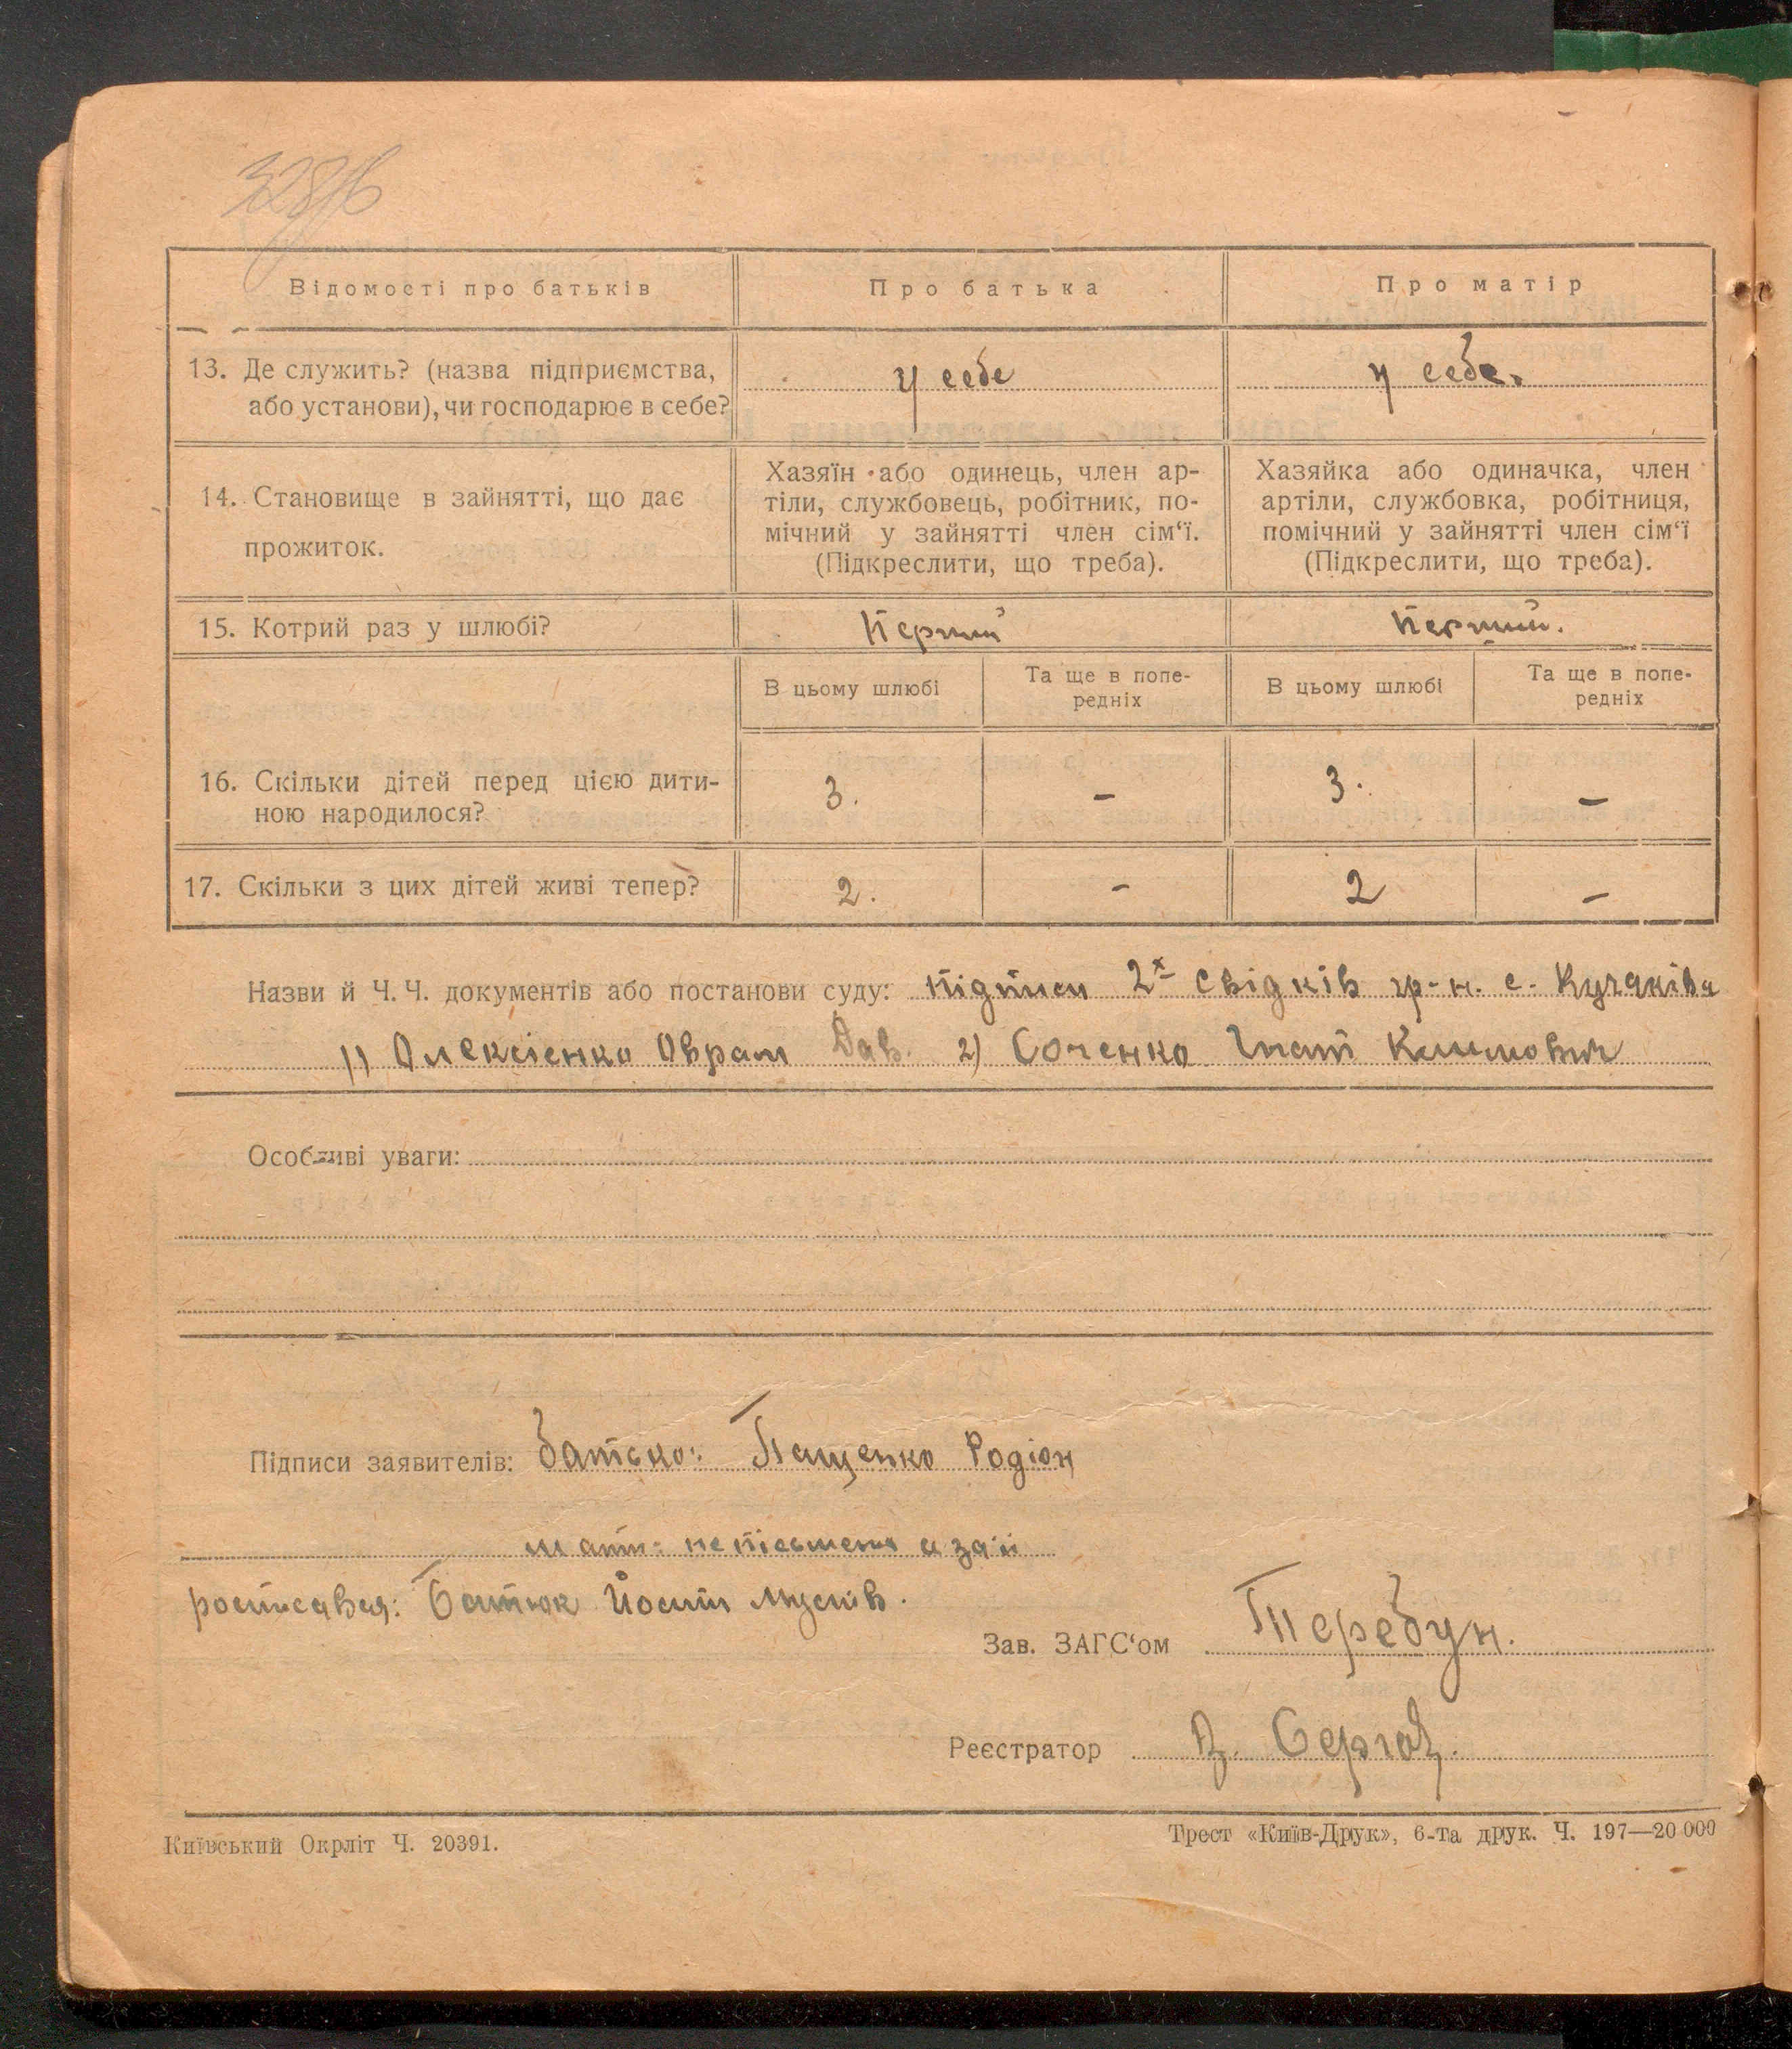 Відомості про батьків Про батька Про матір
13. Де служить? (назва підприємства, у себе у себе.
або установи), чи господарює в себе?
14. Становище в зайнятті, що дає
прожиток.
Хазяїн або одинець, член ар-
тіли, службовець, робітник, по-
мічний у зайнятті член сім‘ї.
(Підкреслити, що треба).
Хазяйка або одиначка, член
артіли, службовка, робітниця,
помічний у зайнятті член сім‘ї
(Підкреслити, що треба).
15. Котрий раз у шлюбі? Перший Перший.
В цьому шлюбі Та ще в попе-
редніх
В цьому шлюбі Та ще в попе-
редніх
16. Скільки дітей перед цією дити-
ною народилося? 3. – 3. –
17. Скільки з цих дітей живі тепер? 2. – 2 –
Назви й Ч. Ч. документів або постанови суду: підписи 2х свідків гр-н. с. Кучаківа
1) Олексієнко Оврам Дав. 2) Соченко Гнат Климович
Особливі уваги:
Підписи заявителів: батько: Пащенко Родіон
мати: неписьмена а за її
росписався: Батюк Йосип Мусиїв.
Зав. ЗАГС‘ом Теребун.
Реєстратор
Київський Окрліт Ч. 20391.
Трест «Київ-Друк», 6-та друк. Ч. 197—20 000